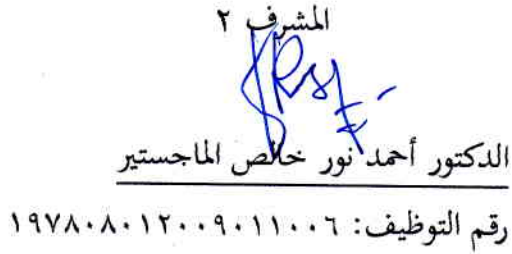 المشرف ٢
الدكتور أحمد نور خالص الماجستير
رقم التوظيف: ١٩٧٨٠٨٠١٢٠٠٩٠١١٠٠٦